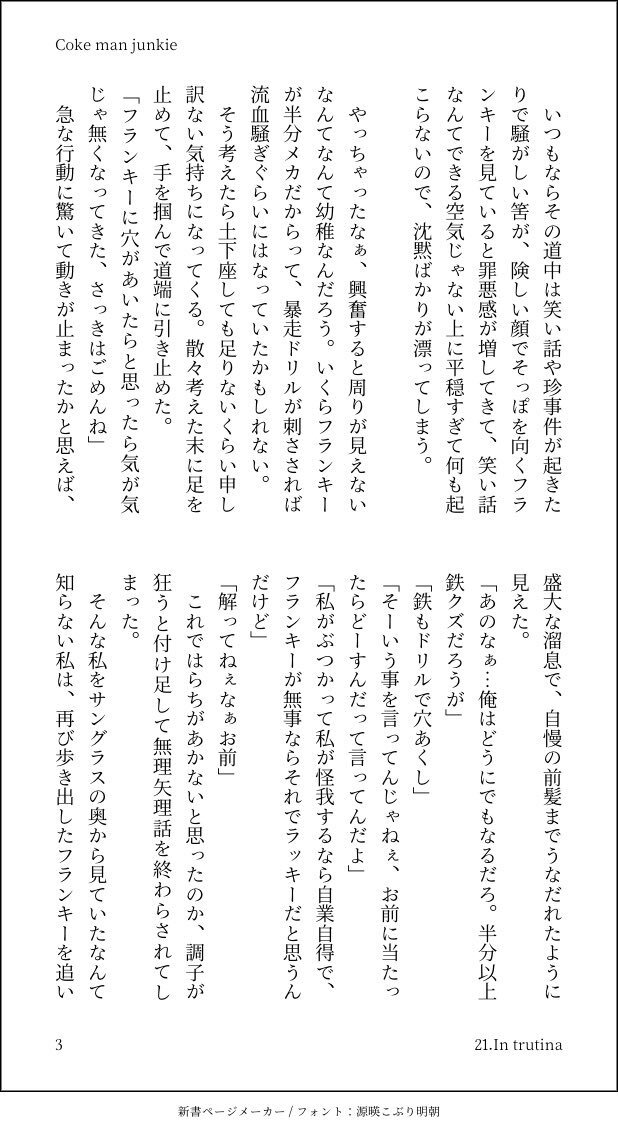 Coke man junkie
　いつもならその道中は笑い話や珍事件が起きた
りで騒がしい筈が、険しい顔でそっぽを向くフラ
ンキーを見ていると罪悪感が増してきて、笑い話
なんてできる空気じゃない上に平穏すぎて何も起
こらないので、沈黙ばかりが漂ってしまう。
　やっちゃったなぁ、興奮すると周りが見えない
なんてなんて幼稚なんだろう。いくらフランキー
が半分メカだからって、暴走ドリルが刺さされば
流血騒ぎぐらいにはなっていたかもしれない。
　そう考えたら土下座しても足りないくらい申し
訳ない気持ちになってくる。散々考えた末に足を
止めて、手を掴んで道端に引き止めた。
「フランキーに穴があいたらと思ったら気が気
じゃ無くなってきた、さっきはごめんね」
　急な行動に驚いて動きが止まったかと思えば、
盛大な溜息で、自慢の前髪までうなだれたように
見えた。
「あのなぁ…俺はどうにでもなるだろ。半分以上
鉄クズだろうが」
「鉄もドリルで穴あくし」
「そーいう事を言ってんじゃねぇ、お前に当たっ
たらどーすんだって言ってんだよ」
「私がぶつかって私が怪我するなら自業自得で、
フランキーが無事ならそれでラッキーだと思うん
だけど」
「解ってねぇなぁお前」
　これではらちがあかないと思ったのか、調子が
狂うと付け足して無理矢理話を終わらされてし
まった。
　そんな私をサングラスの奥から見ていたなんて
知らない私は、再び歩き出したフランキーを追い
3
21.In trutina
新書ページメーカー / フォント：源暎こぶり明朝